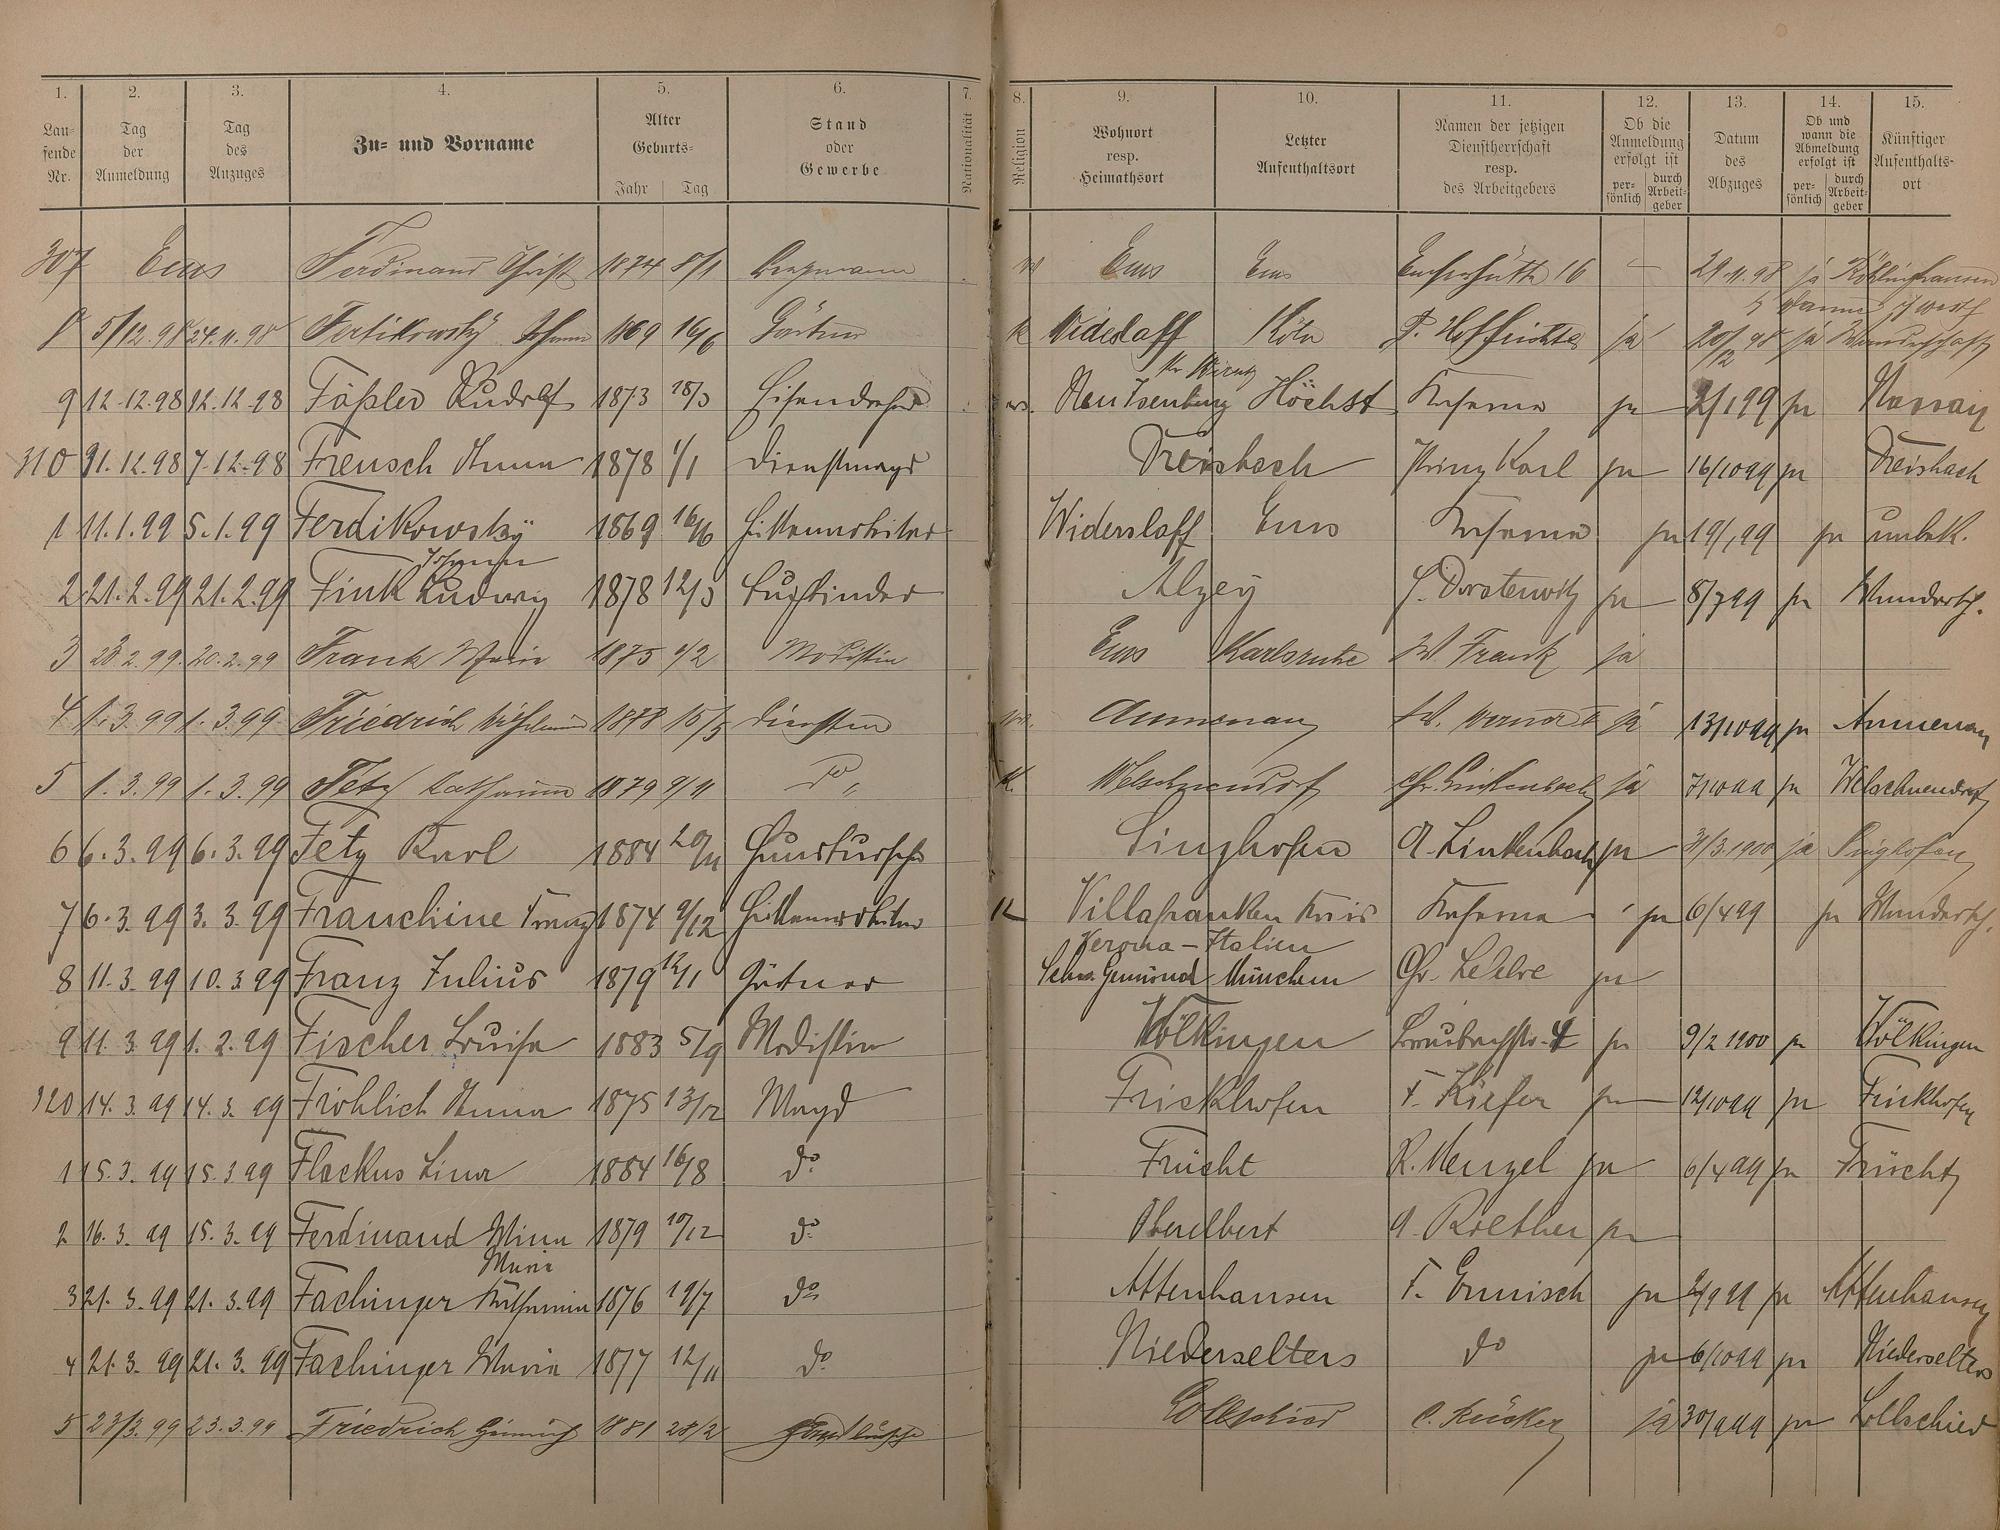 1. 2. 3. 4. 5. 6. 7. 8. 9. 10. 11. 12. 13. 14. 15.
Laufende Nr.
Tag der Anmeldung
Tag des Anzuges
Zu- und Vorname
Alter Geburts- Jahr Tag
Stand oder Gewerbe
Nationalität
Religion
Wohnort resp. Heimathsort
Letzter Aufenthaltsort
Namen der jetzigen Dienstherrschaft resp. des Arbeitgebers
Ob die Anmeldung erfolgt ist persönlich durch Arbeitgeber
Datum des Abzuges
Ob und wann die Abmeldung erfolgt ist persönlich durch Arbeitgeber
Künftiger Aufenthaltsort
307 Ems Ferdinand Christ 1874 8/1 Bergmann Ems Ems Emserhütte 16 29.11.98 ja
8 5/12.98 24.11.98 Fertikowsky Johann 1869 16/6 Gärtner K Wideslaff Köln P. Hoffrichter ja 20/12 98 ja Wanderschaft
9 12.12.98 12.12.98 Fößler Rudolf 1873 18/3 Eisendreher Neu Isenburg Höchst Kaserne ja 2/1 99 ja Nassau
310 31.12.98 7.12.98 Freusch Anna 1878 1/1 Dienstmagd Dreisbach Prinz Karl ja 16/10 99 ja Dreisbach
1 11.1.99 5.1.99 Ferdikowsky Johann 1869 16/6 Hüttenarbeiter Widerslaff Ems Kaserne ja 19/1 99 ja unbek.
2 21.2.99 21.2.99 Fink Ludwig 1878 12/3 Buchbinder Alzey ja 8/7 99 ja Wandersch.
3 28.2.99. 20.2.99 Frank Marie 1875 1/2 Modistin Ems Karlsruhe W. Frank ja
4 1.3.99 1.3.99 Friedrich Wilhelmine 1878 15/5 Aumenau W. ja 13/10 99 ja Aumenau
5 1.3.99 1.3.99 Fetz Katharina 1879 9/11 do " K. Welschneudorf Chr. Linkenbach ja 7/10 99 ja Welschneudorf
6 6.3.99 6.3.99 Fetz Karl 1884 20/11 Hausbursche Singhofen A. Linkenbach ja 31/3.1900 ja Singhofen
7 6.3.99 3.3.99 Franchine Franz 1874 9/12 Hüttenarbeiter K Villafranken Kreis Kaserne ja 6/4 99 ja Wandersch.
Verona - Italien
8 11.3.99 10.3.99 Franz Julius 1879 12/1 Gärtner Schw. Gemünd München ja
9 11.3.99 1.2.99 Fischer Louise 1883 5/9 Modistin Wölkingen ja 9/2 1900 ja Wölkingen
320 14.3.99 14.3.99 Fröhlich Anna 1875 13/12 Magd Frickhofen F. Kiefer ja 12/10 99 ja Frickhofen
1 15.3.99 15.3.99 Flackus Lina 1884 16/8 do Frücht R. Menzel ja 6/4 99 ja Frücht
2 16.3.99 15.3.99 Ferdinand Minna 1879 10/12 do Oberelbert A. Roether ja
Maria
3 21.3.99 21.3.99 Fachinger Katharina 1876 19/7 do Attenhausen F. Ermisch ja 2/9 99 ja Attenhausen
4 21.3.99 21.3.99 Fachinger Maria 1877 12/11 do Niederselters do ja 6/10 99 ja Niederselters
5 23/3.99 23.3.99 Friedrich Heinrich 1881 28/2 Hausbursche Lollschied C. Rücker ja 30/9 99 ja Lollschied